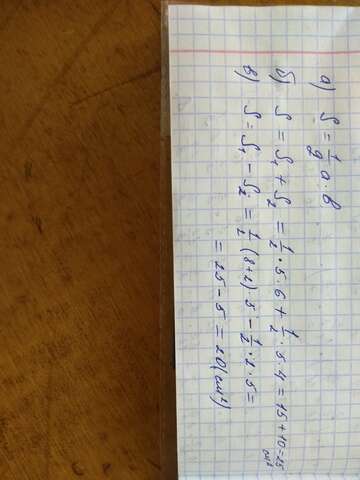 а) S = 1/2 a · b
б) S = S₁ + S₂ = 1/2 · 5 · 6 + 1/2 · 5 · 4 = 15 + 10 = 25 см²
в) S = S₁ - S₂ = 1/2 (8+2) · 5 - 1/2 · 2 · 5 =
= 25 - 5 = 20 (см²)